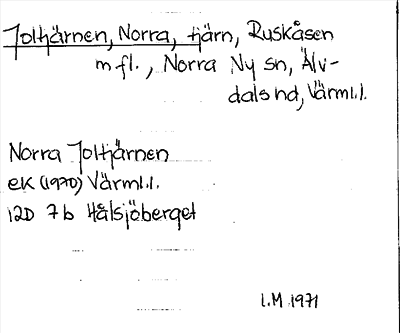 Joltjärnen, Norra, tjärn, Ruskåsen
m fl., Norra Ny sn, Älv-
dals hd, Värml.l.
Norra Joltjärnen
ek (1970) Värml.l.
12D 7b Hålsjöberget
I.M 1971